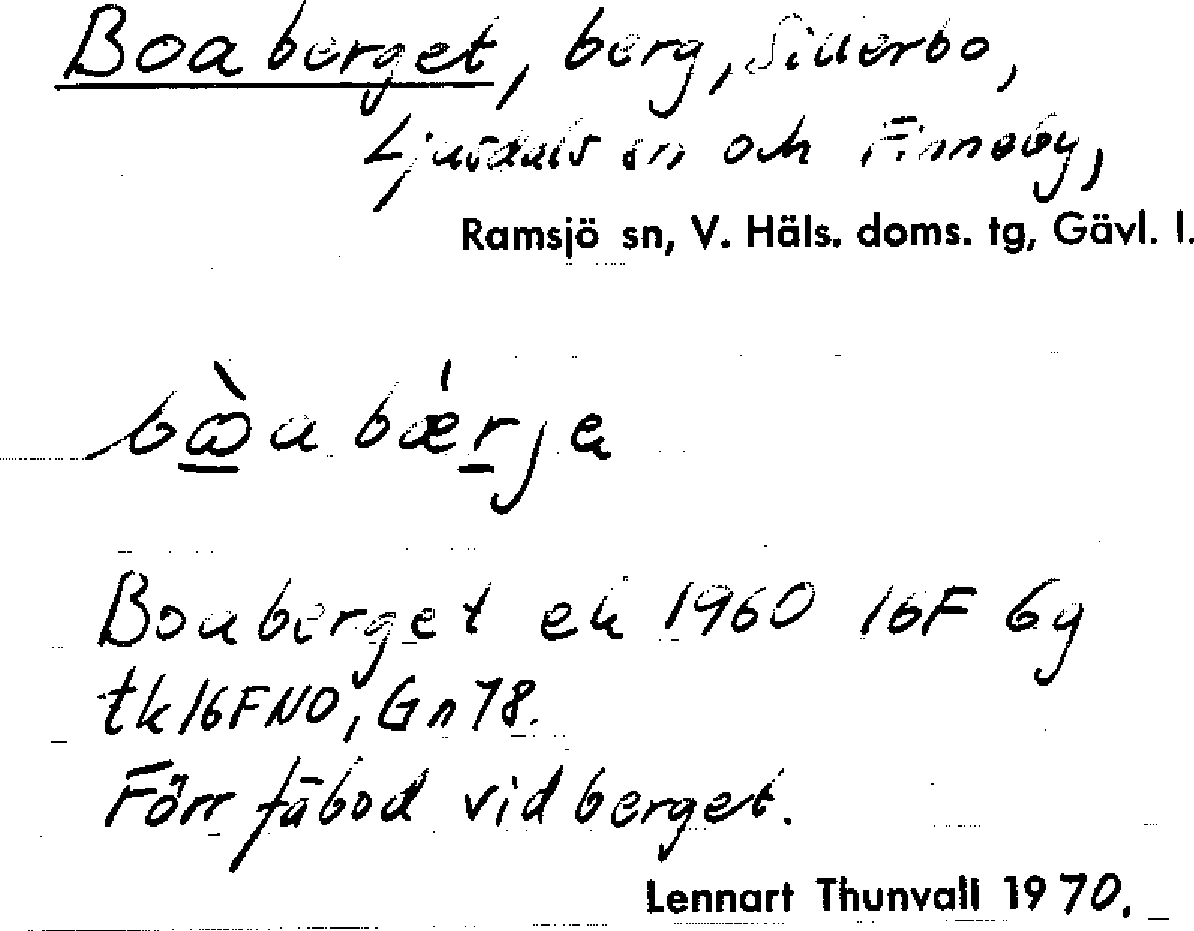 Boaberget, berg, Sillerbo,
Ljusdals sn och Finneby,
Ramsjö sn, V. Häls. doms. tg, Gävl. l.
Boaberget ek 1960 16F 6g
tk 16F NO, Gn 78.
Förr fäbod vid berget.
Lennart Thunvall 1970.